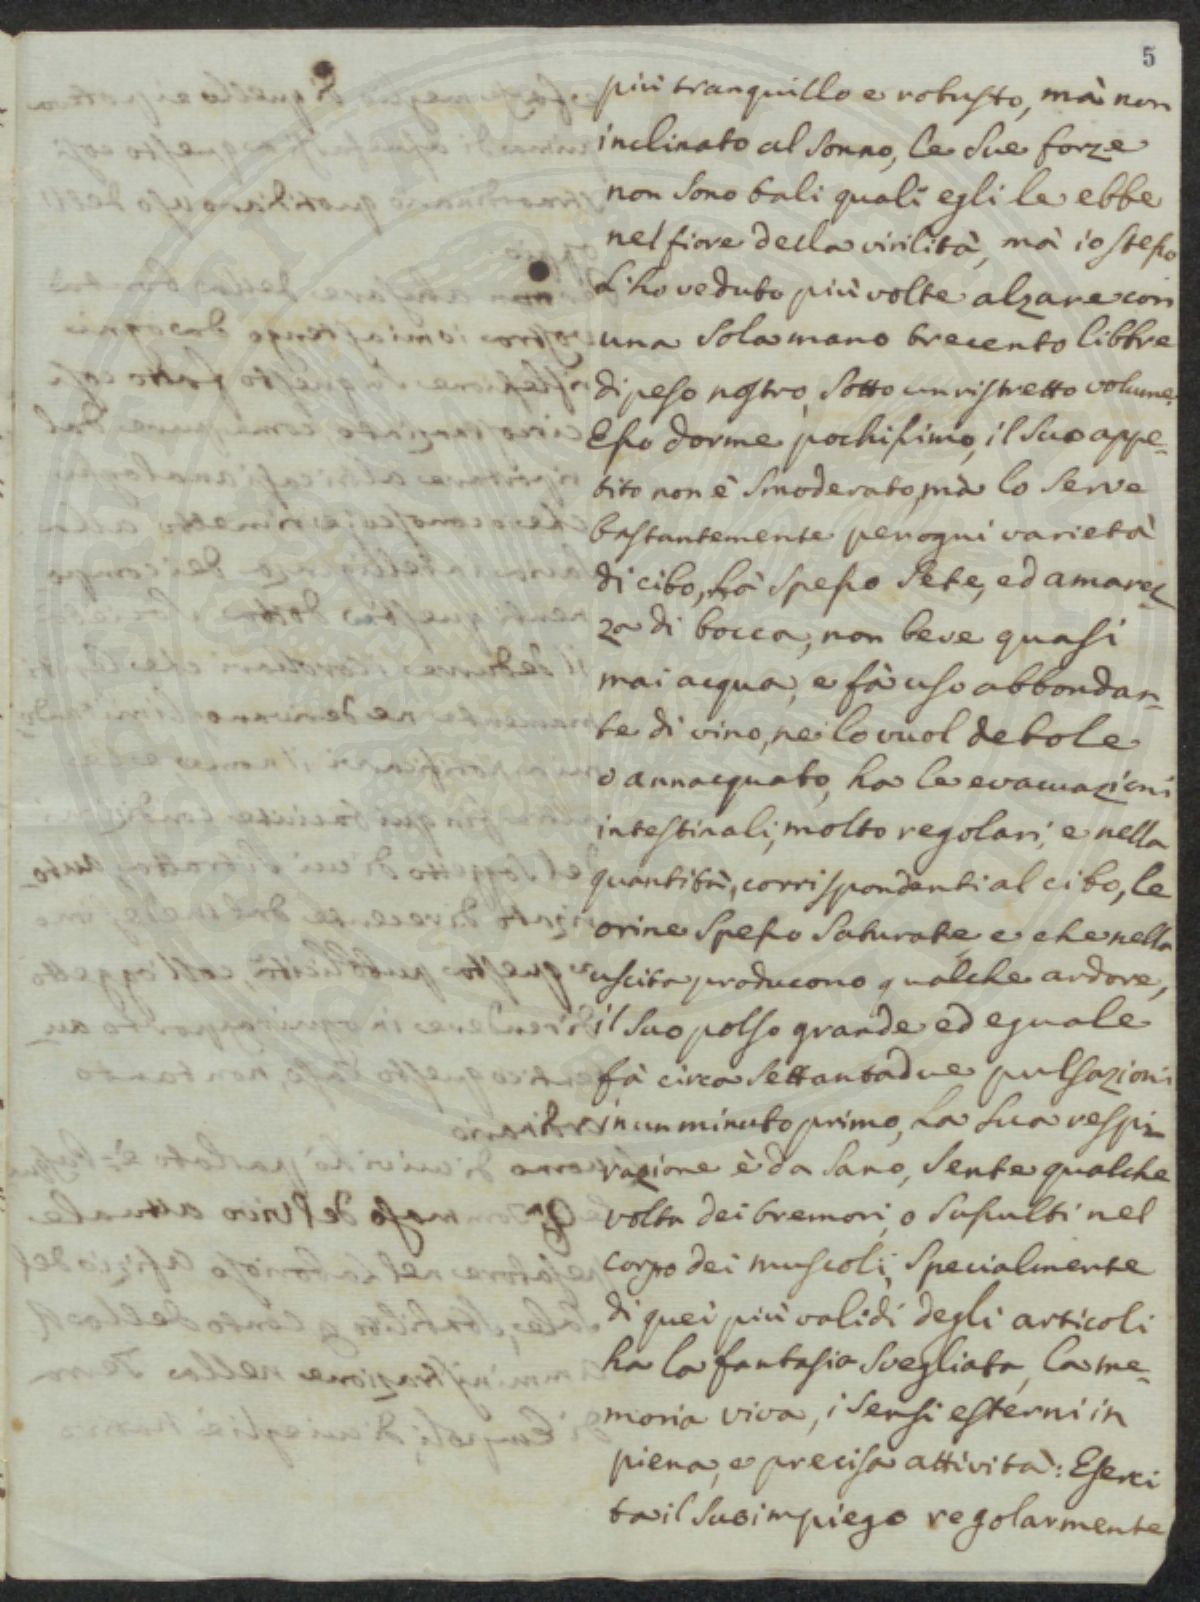 5
più tranquillo e robusto, mà non
inclinato al sonno, le sue forze
non sono tali quali egli le ebbe
nel fiore della virilità, mà io stesso
L'ho veduto più volte alzare con
una sola mano trecento libbre
di peso nostro, sotto un ristretto volume.
Esso dorme pochissimo, il suo appe-
tito non è smoderato, mà lo serve
bastantemente per ogni varietà
di cibo, hà spesso sete, ed amarez
za di bocca, non beve quasi
mai acqua, e fà uso abbondan-
te di vino, nè lo vuol debole
o annacquato, ha le evacuazioni
intestinali, molto regolari, e nella
quantità, corrispondenti al cibo, le
orine spesso saturate e che nella
uscita producono qualche ardore,
il suo polso grande ed eguale
fà circa settantadue pulsazioni
in un minuto primo, La sua respi-
razione è da sano, sente qualche
volta dei tremori, o sussulti nel
corpo dei muscoli, specialmente
di quei più validi degli articoli
ha la fantasia svegliata, la me-
moria viva, i sensi esterni in
piena, e precisa attività: Eserci
ta il suo impiego regolarmente